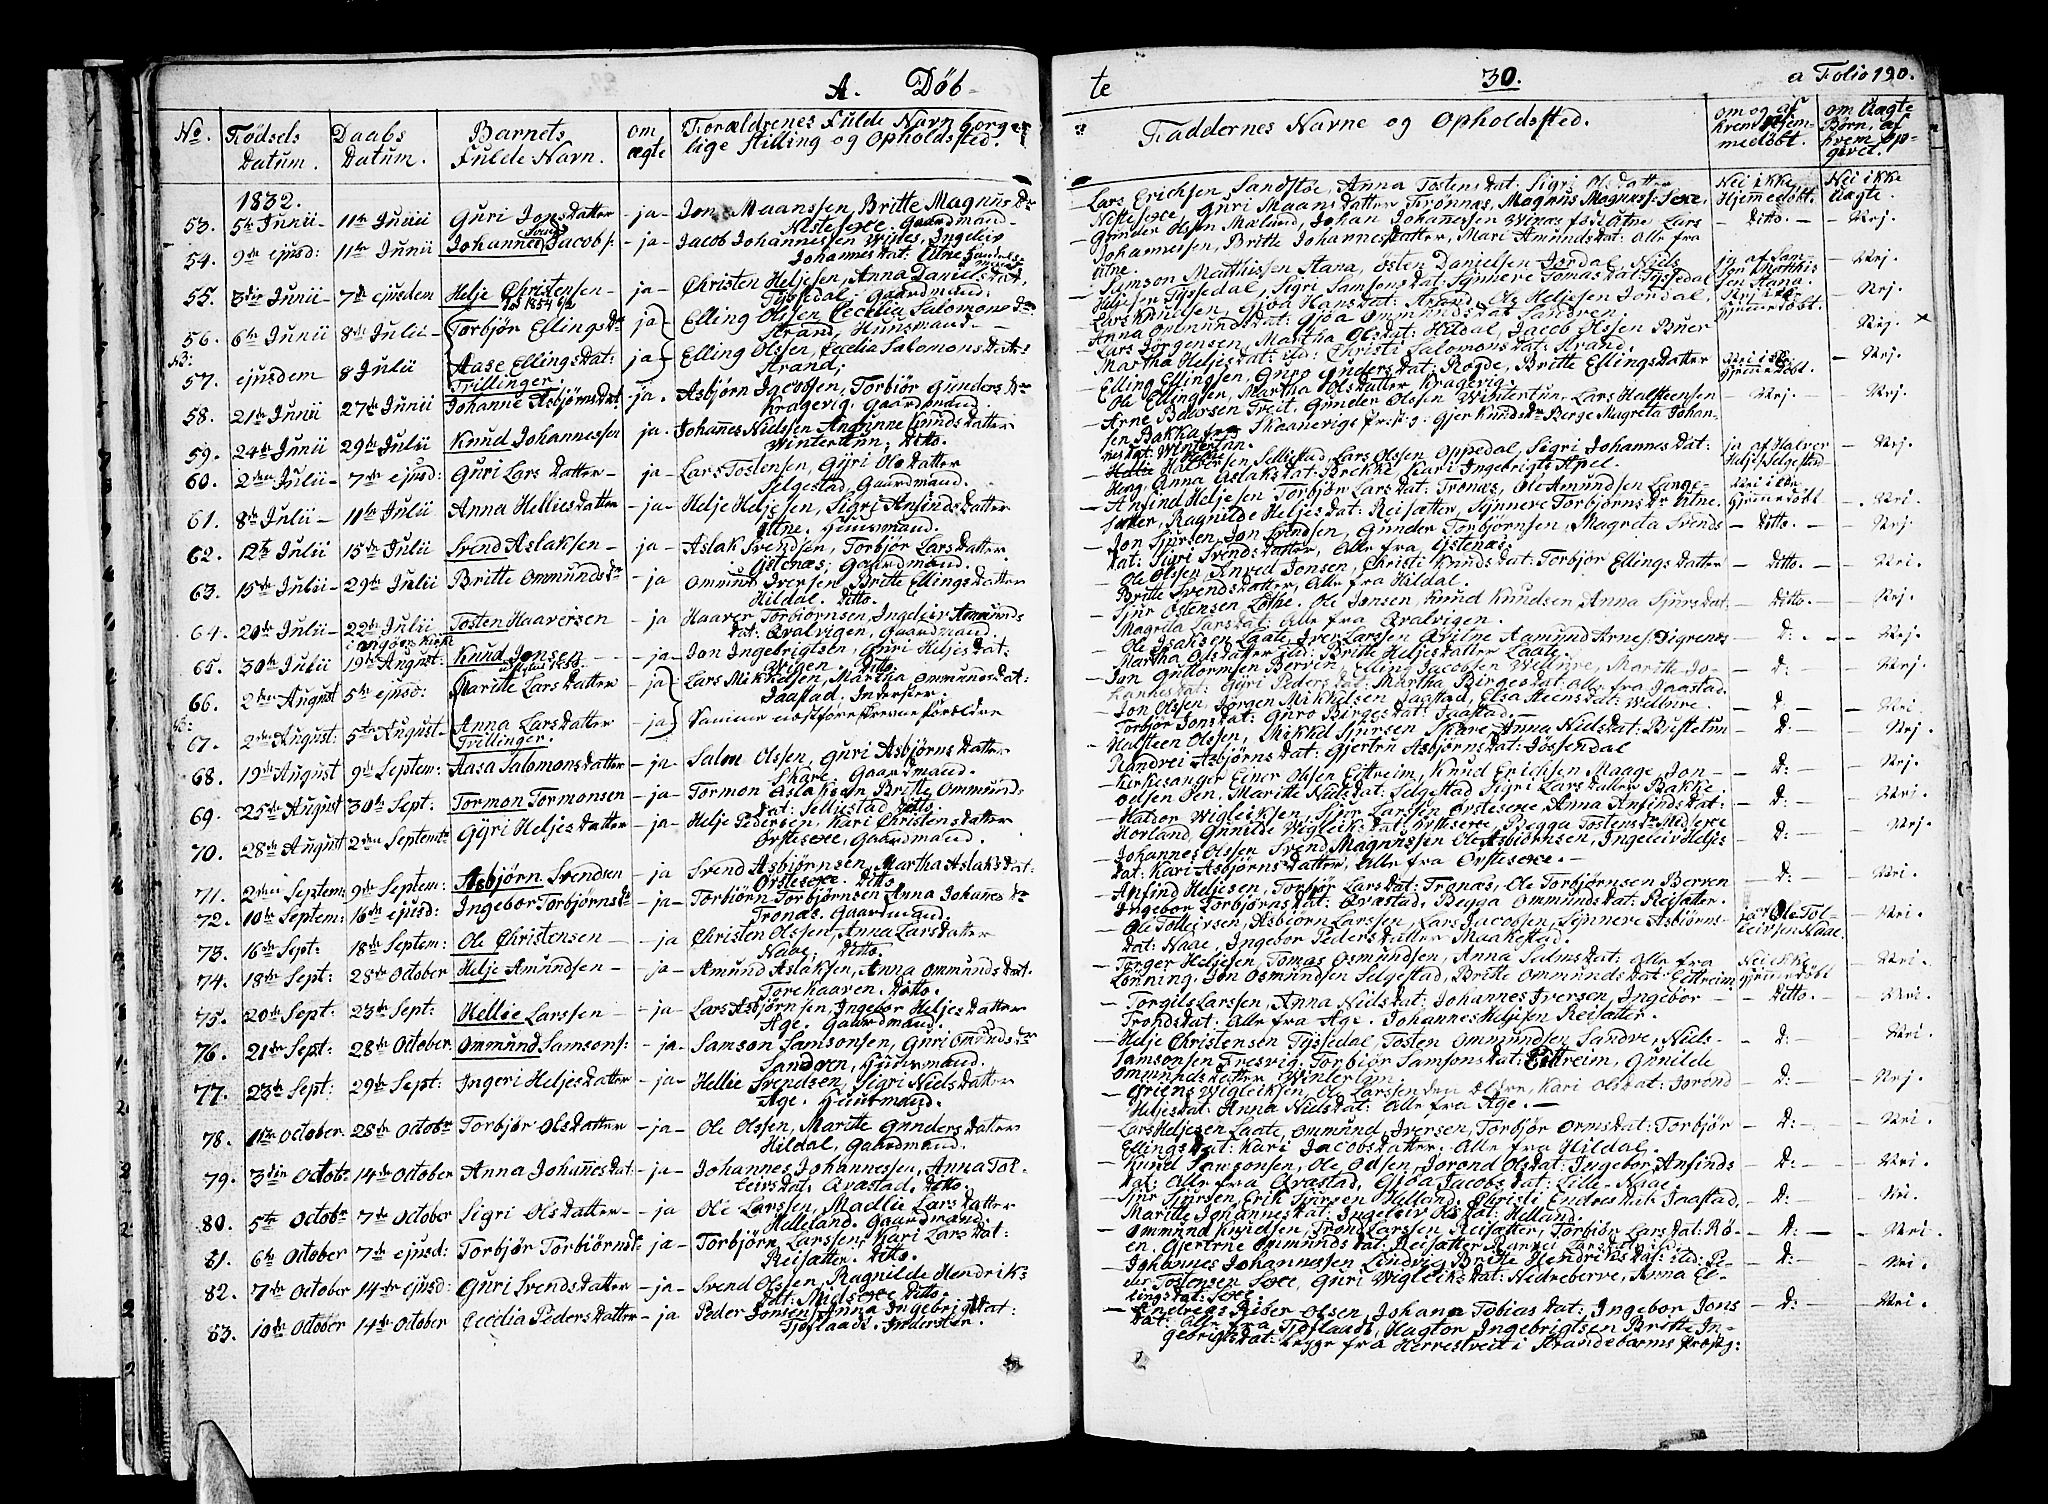 A. Døb-
No. Fødsels Datum. Daabs Datum. Barnets Fulde Navn. om ægte Forældrenes Fulde Navn borgerlige Stilling og Opholdssted.
1832.
53. 5te Junii 11te Junii Guri Jonsdatter - ja - Jon Maanssen, Britte Magnus Dr
Nistesexe. Gaardmand -
54. 9de ejusd: 11te Junii Johannes Jacobs: - ja - Jacob Johannessen Wines, Ingeleiv
Johannesdat: Utne
55. 3die Junii - 7de ejusdem Helje Christensen - ja - Christen Heljesen, Anna Danielsdat,
Tyssedal. Gaardmand.
56. 6te Junii 8de Julii - Torbjør Ellings Dr ja Elling Olssen Cecelia Salomons Dr
Strand, Huusmand. -
57. ejusdem 8 Julii Aase Ellingsdat: - ja Elling Olssen, Cecelia Salomonsdat:
Tvillinger. Strand,
58. 21de Junii 27de Junii Johanne Asbjørnsdat ja. Asbjørn Jacobsen, Torbjør Gunders Dr
Kragevig. Gaardmand.
59. 24de Junii 29de Julii Knud Johannessen ja. Johañes Nielssen
Wintertun, Ditto.
60. 2den Julii - 7de ejusd: Guri Lars datter - ja - Lars Tostensen, Gyri Ols datter
Selgestad, Gaardmand.
61. 8de Julii - 11te Julii Anna Helliesdatter - ja - Helje Heljesen, Sigri Anfindsdatter
Utne. Huusmand.
62. 12te Julii 15de Julii Svend Aslaksen - ja - Aslak Svendsen, Torbjør Larsdatter
Ystenæs, Gaardmand.
63. 15de Julii - 29de Julii Britte Ommunds Dr - ja Ommund Iversen Britte Ellingsdatter
Hildal. Ditto.
64. 20de Julii - 22de Julii Tosten Haaversen - ja Haaver Torbiørnsen, Ingeleiv Amunds
dat: Qvalvigen, Gaardmand.
65. 30de Julii 19de August: Knud Jonsen - ja - Jon Ingebrigtsen, Guri Heljesdat:
Wigen. Ditto.
66. 2den August 5te ejusd: Maritte Larsdatter - ja Lars Mikkelsen, Martha Ommundsdat:
Jaastad, Inderster.
67. 2den August: 5te August - Anna Larsdatter - ja
Tvillinger. Samme næstforeskrevne Forældre
68. 19de August 9de Septem: Aasa Salomonsdatter - ja - Salom Olssen, Guri Asbjørnsdatter
Skare. Gaardmand.
69. 25de August 30te Sept: Tormon Tormonsen - ja - Tormon Aslaksen Britte Ommunds
dat: Selliestad Ditto.
70. 28de August 2den Septembr Gyri Heljesdatter - ja - Helje Pedersen, Kari Christensdatter
Ørstesexe, Gaardmand.
71. 2den Septem: 9de Septem: Asbjørn Svendsen - ja Svend Asbjørnsen, Martha Aslaksdat:
Ørstesexe. Ditto
72. 10de Septem: 16de ejusd: Ingebor Torbjørns Dr - ja - Torbiørn Torbiørnsen Anna Johañes Dr
Tronæs. Gaardmand.
73. 16de Sept: 18de Septem: Ole Christensen - - ja Christen Olssen, Anna Larsdatter
Naae, Ditto.
74. 18de Sept: 28de October Helje Amundsen - - ja - Amund Aslaksen, Anna Ommundsdat.
Torekaaren. Ditto.
75. 20de Sept: 23de Sept: Hellie Larssen - - ja - Lars Asbjørnsen, Ingebor Heljesdatter
Age. Gaardmand.
76. 21de Sept: 28de October Ommund Samsons: - ja - Samson Samsonsen, Guri Omunds Dr
Sandven, Huusmand.
77. 23de Sept: 29de Sept: Ingeri Heljesdatter - ja - Hellie Svendsen, Sigri Nielsdatter
Age. Huusmand.
78. 11te October. 28de Octobr Torbjør Olsdatter - ja - Ole Olssen, Maritte Gundersdatter
Hildal, Gaardmand.
79. 3die Octobr 14de October Anna Johañesdat - ja - Johannes Johannessen, Anna Tol-
leivsdat: Qvæstad. Ditto.
80. 5te Octobr 7de October Sigri Olsdatter - - ja Ole Larssen, Madlie Larsdatter
Helleland. Gaardmand.
81. 6te October 7de ejusd: Torbjør Torbiørnsdr ja - Torbjørn Larssen, Kari Larsdat:
Reisæter. Ditto.
82. 7de October 14de ejusd: Guri Svendsdatter - ja - Svend Olssen, Ragnilde Hendriks
dat: Midsexe Ditto.
83. 10de October 14de October Cecelia Pedersdatter - ja Peder Jonsen, Anna Ingebrigtdat:
Tjoflaadt. Inderster.
te 30. a Folio 190.
Faddernes Navne og Opholdssted. om og af hvem Hjemmedøbt. om Uagte Børn, af hvem Opgivet.
Lars Erichsen Sandstøe, Anna Tostensdat. Sigri Olsdatter Nei ikke Nei ikke
Nistesexe, Guri Maansdatter Tronnæs, Magnus Magnussen Sexe, Hjemmedøbt. Uagte.
Gunder Olssen Maland, Johan Johannessen Winæs født Utne, Lars - Ditto. - - Nej.
Johannessen, Britte Johannesdatter, Mari Amundsdat: alle fra
Utne.
- Samson Matthissen Stana, Østen Danielsen Jordal, Niels ja af Sam- - Nej.
Heljesen Tyssedal, Sigri Samsonsdat: Synnere Tomasdat: Tyssedal son Matthis
- Lars Knudsen, Gjøa Hansdat: Strand, Ole Heljesen Jordal, sen Stana. - Nej.
Anna Ommundsdat: Gjøa Ommundsdat Sandven.
- Lars Jørgensen, Martha Olsdat: Hildal, Jacob Olssen Bruer Nej. x
Martha Heljesdat: ibid: Christi Salomonsdat: Strand.
- Elling Ellingsen, Guro Gundersdat: Rogde, Britte Ellingsdatter Nei ikke - Nej.
Ole Ellingsen, Martha Olsdatter Kragevig. Hjemmedøbt.
- Arne Baarsen Treit, Gunder Olssen Wintertun, Lars Halsteensen - Nej. - - Nej.
sen Bakka fra Skeanevigs Præstg: Gjer Knuds Dr Berge Magreta Johan-
nesdat: Wintertun.
Halvorsen Sellestad, Lars Olssen Oppedal, Sigri Johannesdat: ja af Halver - Nej.
Anna Aslaksdat: Brekke, Kari Ingebrigts Apel. Heljes: Selgestad
- Anfind Heljesen, Torbjør Larsdat: Tronæs, Ole Amundsen Lange- Nei ikke
sætter, Ragnilde Heljesdat: Reisætter, Synnere Torbjørns Dr Utne. Hjemmedøbt - Nej.
- Jon Sjursen, Jon Svendsen, Gunder Torbjørnsen, Magreta Svends - Ditto. - - Nej.
dat: Sigri Svendsdatter, Alle fra Ystenæs.
- Ole Olssen, Amund Jonsen, Christi Knudsdat: Torbjør Ellingsdatter - Ditto. - - Nei.
Britte Svendsdatter, Alle fra Hildal.
- Sjur Østensen Lothe. Ole Jonsen, Knud Knudsen Anna Sjursdat: - Ditto. - - Nej.
Magreta Larsdat: Alle fra Qvalvigen.
- Ole Isaksen Laate, Iver Larssen Aamund Arnes: Digrenes - D: - - Nej.
Martha Olsdatter ibid: Britte Heljesdatter Laate.
- Jon Guttormsen Berven, Elling Jacobsen Wellure, Maritte Jo- - D: - - Nej.
hannesdat: Gyri Pedersdat: Martha Birgesdat: alle fra Jaastad.
- Jon Olssen, Jørgen Mikkelsen Jaastad, Elsa Steensdat: Wellure. - D: - - Nei.
Torbjør Jonsdat: Guro Birgesdat: Jaastad. -
- Halsteen Olssen, Mikkel Sjursen Skare, Anna Nielsdat: Bustetun - D: - - Nej.
Randvei Asbjørnsdat: Gjertru Asbjørnsdat: Jøssendal
- Kirkesanger Einer Olssen Eittreim, Knud Erichsen Maage, Jon - - D: - - Nej.
Oelsen Øen, Maritte Nielsdat: Selgestad Sigri Larsdatter Bakke.
- Hatdor Wigleiksen, Sjur Larssen Ørstesexe, Anna Anfindsdat: - D: - - Nei.
Horland, Gunilde Wigleiksdat: Ørstesexe, Begga Tostens Dr Midsexe
- Johannes Olssen, Svend Magnussen Ole Asbiørnsen, Ingeleiv Heljes - D: - - Nej.
dat: Kari Asbjørnsdatter, Alle fra Ørstesexe. -
Anfind Heljesen, Torbjør Larsdat: Tronæs, Ole Torbjørnsen Berven - D: - - Nei.
Ingebor Torbjørnsdat: Qvæstad, Begga Ommundsdat: Reisætter.
- Ole Tolleivsen, Asbiørn Larssen, Lars Jacobsen, Synnere Asbjørns- ja er Ole Tol- - Nei.
dat: Naae, Ingebor Pedersdatter Maakestad. leivsen Naae.
- Torger Heljesen, Tomas Osmundsen, Anna Salmsdat: alle fra Nei ikke - Nei.
Lønning. Jon Osmundsen Selgestad, Britte Ommundsdat: Eittreim Hjemmedøbt
- Torgils Larssen, Anna Nielsdat: Johannes Iversen, Ingebor - - Ditto. - - Nei.
Trondsdat: alle fra Age. Johannes Heljesen Reisætter.
- Helje Christensen Tyssedal, Tosten Ommundsen Sandve, Niels - - D: - - Nei.
Samsonsen Fresvig, Torbiør Samsonsdat: Eittreim, Gunilde
Ommundsdatter Wintertun.
Wigleiksen, Ole Larssen, Kari Olsdat: Jorond - D: - - Nej.
Heljesdat: Anna Nielsdat: Alle fra Age. -
- Lars Heljesen Laate, Ommund Iversen, Torbiør Ormsdat: Torbjør - D: - - Nei.
Ellingsdat: Kari Jacobsdatter. Alle fra Hildal.
- Knud Samsonsen, Ole Odsen, Jorond Olsdat: Ingebor Anfinds - D: - - Nei.
dat: Alle fra Qvæstad, Gjøa Jacobsdat: Lille-Naae.
- Sjur Sjursen Erik Sjursen Helland. Christi Endresdat: Jaastad, - D: - - Nei.
Maritte Johannesdat: Ingeleiv Olsdat: Helland.
- Ommund Knudsen, Trond Larssen, Reisætter, Torbiør Larsdat: Rø- - D: - - Nei.
en. Gjertrue Ommundsdat: Reisætter,
- Johannes Johannessen Lindvig Britte Hendriksdat: ibid: Pe- - D: - - Nei.
der Tostensen Sexe, Guri Wigleiksdat: Nedreberve, Anna El-
lingsdat: Sexe.
- Andreas Riber Olsen, Johana Tobiasdat: Ingebor Jons - D: - - Nei.
dat: Alle fra Tjoflaadt, Hagtor Ingebrigtsen Britte In-
gebrigtsdat: begge fra Herrestveit i Strandebarms Præstg: